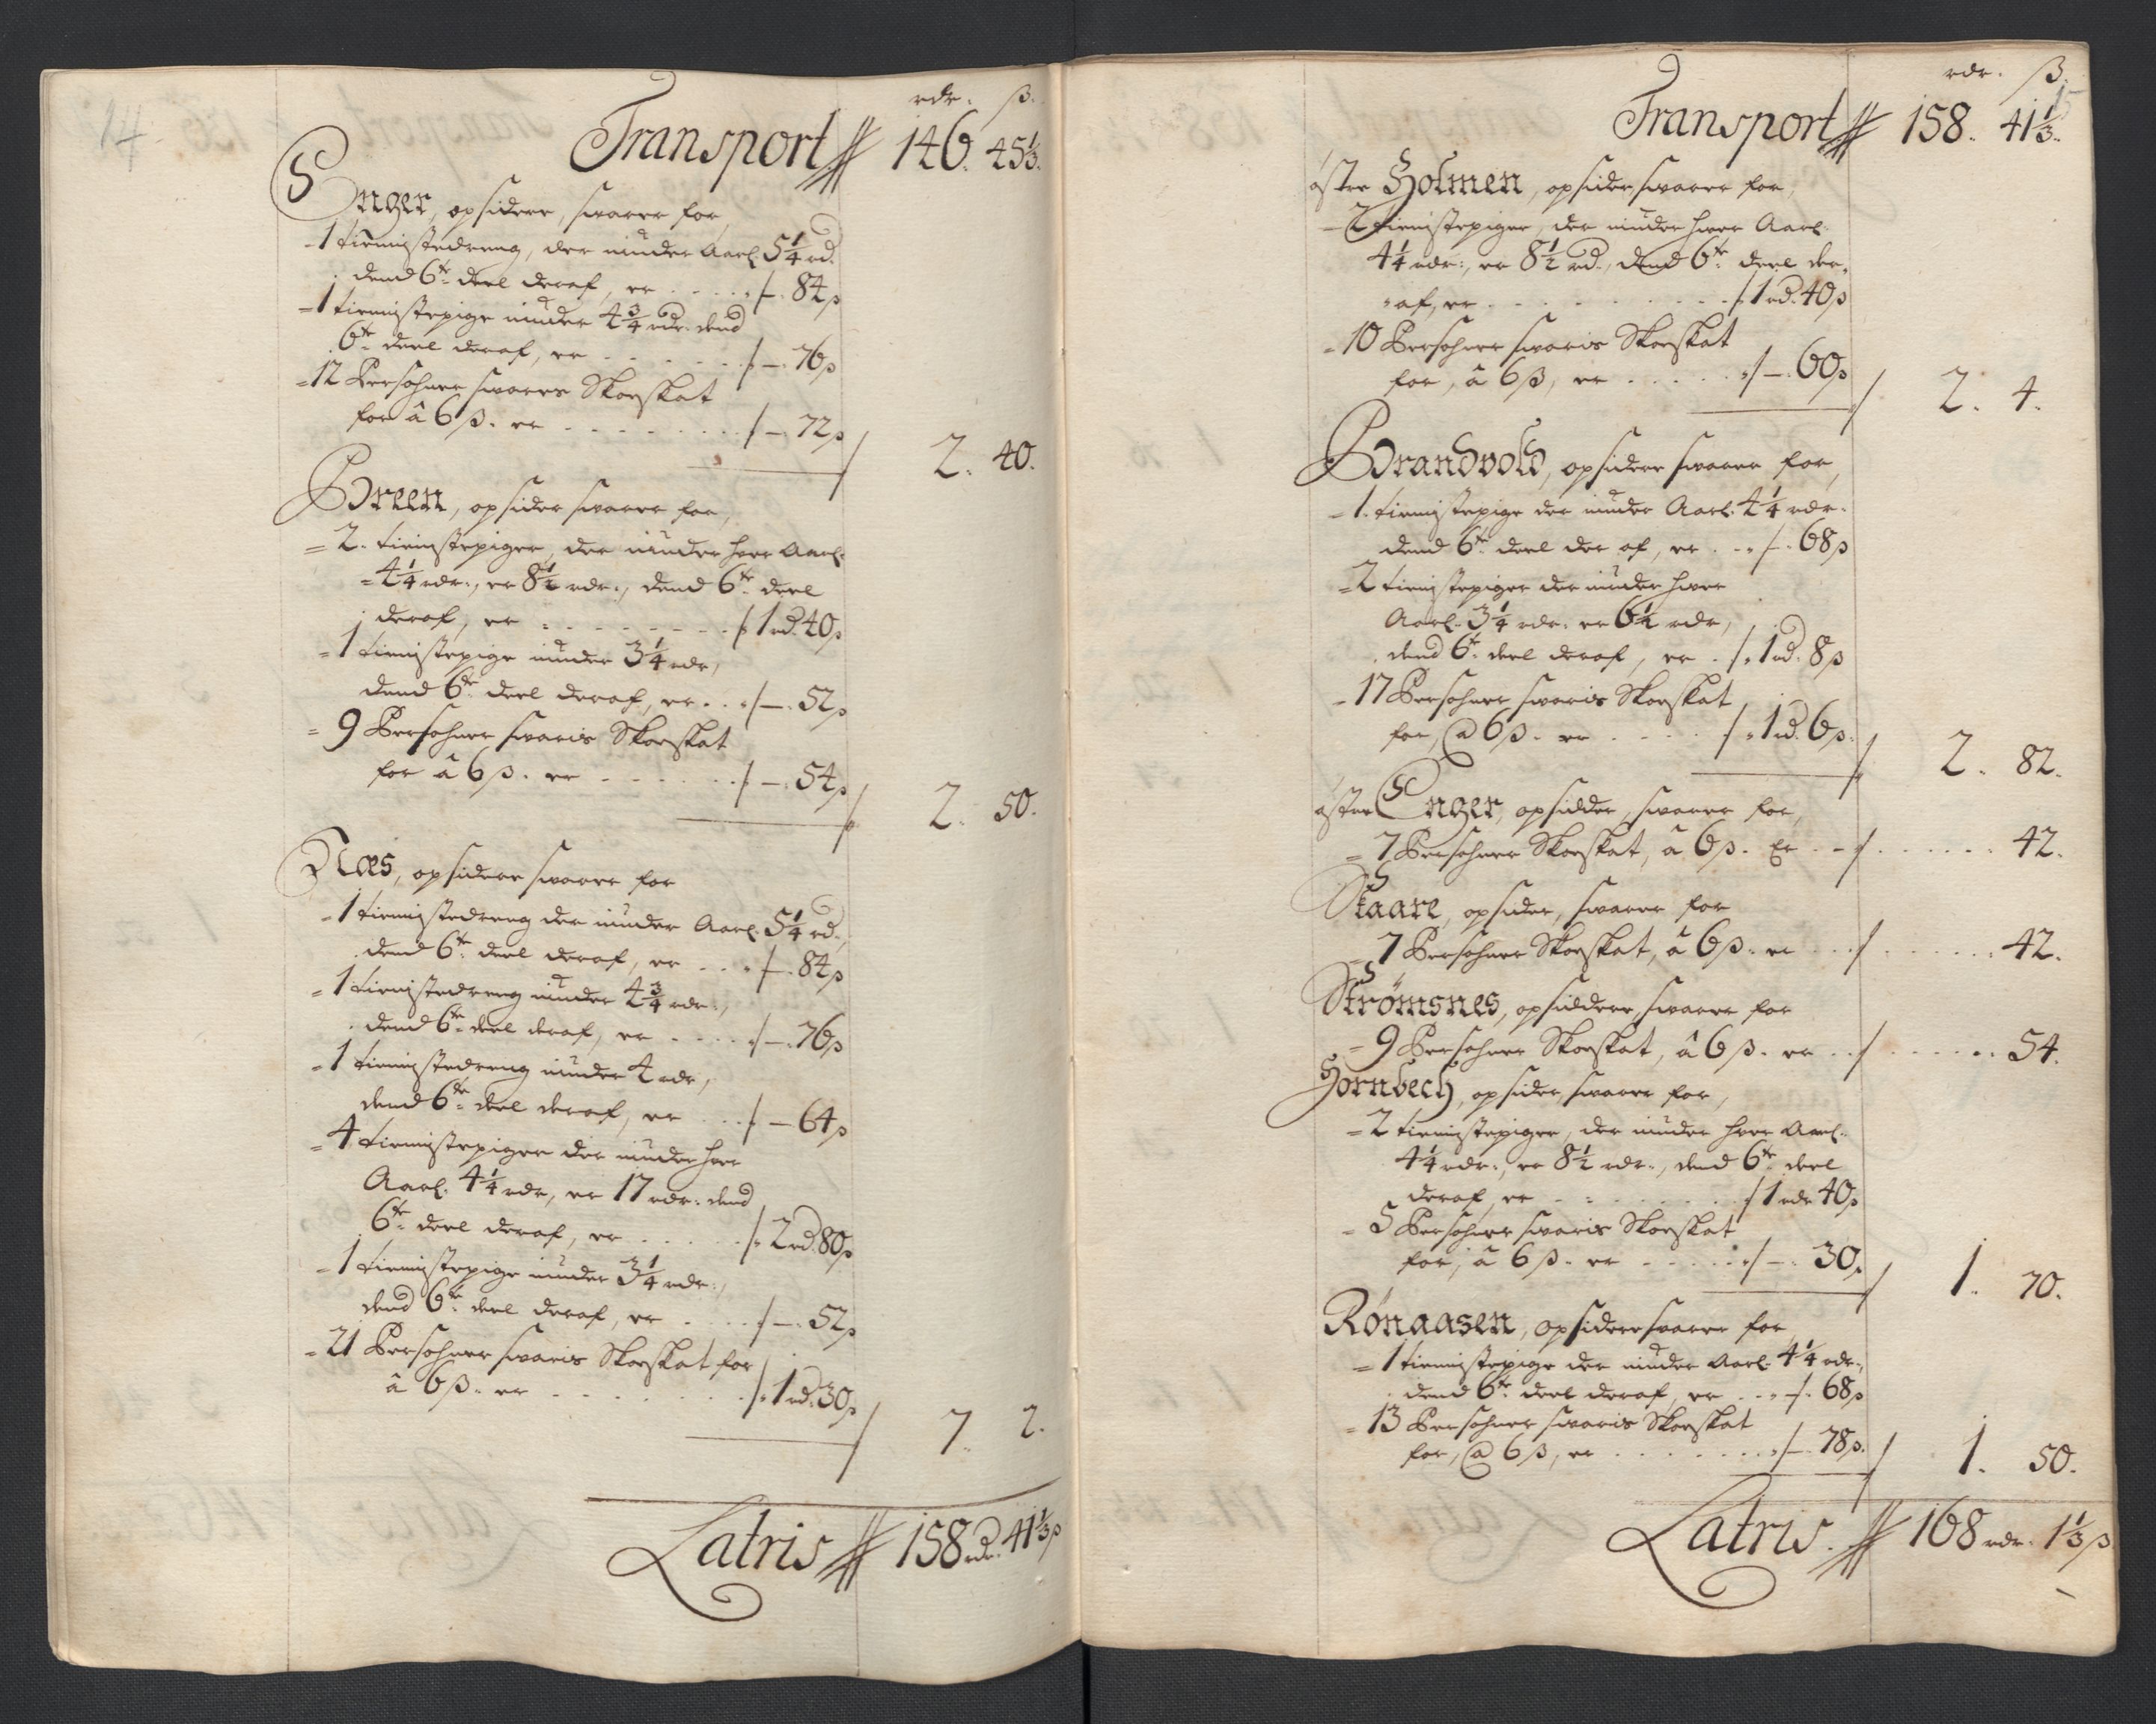 14
rdr. ß.
Transport 146. 45⅓.
Enger, opsidere, svarer for,
1 tienistedreng, der niuder Aarl. 5¼ rd.
dend 6te deel deraf, er . . . . 84 ß
1 tienistepige niuder 4¾ rdr. dend
6te deel deraf, er . . . . . . — 76 ß
12 Persohner svarer Skoeskat
for â 6 ß. er . . . . . . . — 72 ß
2. 40.
Breen, opsider svarer for,
2. tienistepiger, der niuder hver Aarl.
4¼ rdr., er 8½ rdr., dend 6te deel
deraf, er . . . . . . . . 1 rd. 40 ß
1 tienistepige niuder 3¼ rdr,
dend 6te deel deraf, er . . — 52 ß
9 Persohner svaris Skoeskat
for â 6 ß. er . . . . . . — 54 ß
2. 50.
Næs, opsidere svarer for
1 tienistedreng der niuder Aarl. 5¼ rd.
dend 6te deel deraf, er . . . 84 ß
1 tienistedreng niuder 4¾ rdr.,
dend 6te deel deraf, er . . . . — 76 ß
1 tienistedreng niuder 4 rdr,
dend 6te deel deraf, er . . . — 64 ß
4 tienistepiger der niuder hver
Aarl. 4¼ rdr, er 17 rdr. dend
6te deel deraf, er . . . . . 2 rd. 80 ß
1 tienistepige niuder 3¼ rdr.,
dend 6te deel deraf, er . . . . — 52 ß
21 Persohner svaris Skoeskat for
â 6 ß. er . . . . . . . . 1 rd. 30 ß
7. 2.
Latris 158 rdr. 41⅓ ß
15
rdr. ß.
Transport 158. 41⅓.
øster Holmen, opsider, svarer for,
2 tienistepiger, der niuder hver Aarl.
4¼ rdr., er 8½ rd., dend 6te deel der-
af, er . . . . . . . . . 1 rd. 40 ß
10 Persohner svaris Skoeskat
for, â 6 ß, er . . . . . — 60 ß
2. 4.
Brandvold, opsidere svarer for,
1. tienistepige der niuder Aarl. 4¼ rdr.
dend 6te deel der af, er . . . 68 ß
2 tienistepiger der niuder hver
Aarl. 3¼ rdr. er 6½ rdr,
dend 6te deel deraf, er . 1 rd. 8 ß
17 Persohner svaris Skoeskat
for, @ 6 ß. er . . . . 1 rd. 6 ß.
2. 82.
øster Enger, opsidder, svarer for,
7 Persohner Skoeskat, â 6 ß. Er . . . . . . . 42.
Skaare, opsider, svarer for
7 Persohner Skoeskat, â 6 ß. er . . . . . . . . 42.
Strømsnes, opsiddere, svarer for
9 Persohner Skoeskat, â 6 ß. er . . . . . . . 54.
Hornbech, opsider, svarer for,
2 tienistepiger, der niuder hver Aarl.
4¼ rdr., er 8½ rdr., dend 6te deel
deraf, er . . . . . . . . 1 rdr 40 ß
5 Persohner svaris Skoeskat
for, â 6 ß. er . . . . . — . 30 ß
1. 70.
Rønaasen, opsidere svarer for
1 tienistepige der niuder Aarl. 4¼ rdr.,
dend 6te deel deraf, er . . . 68 ß
13 Persohner svaris Skoeskat
for, @ 6 ß, er . . . . . . . — 78 ß.
1. 50.
Latris. 168 rdr. 1⅓ ß